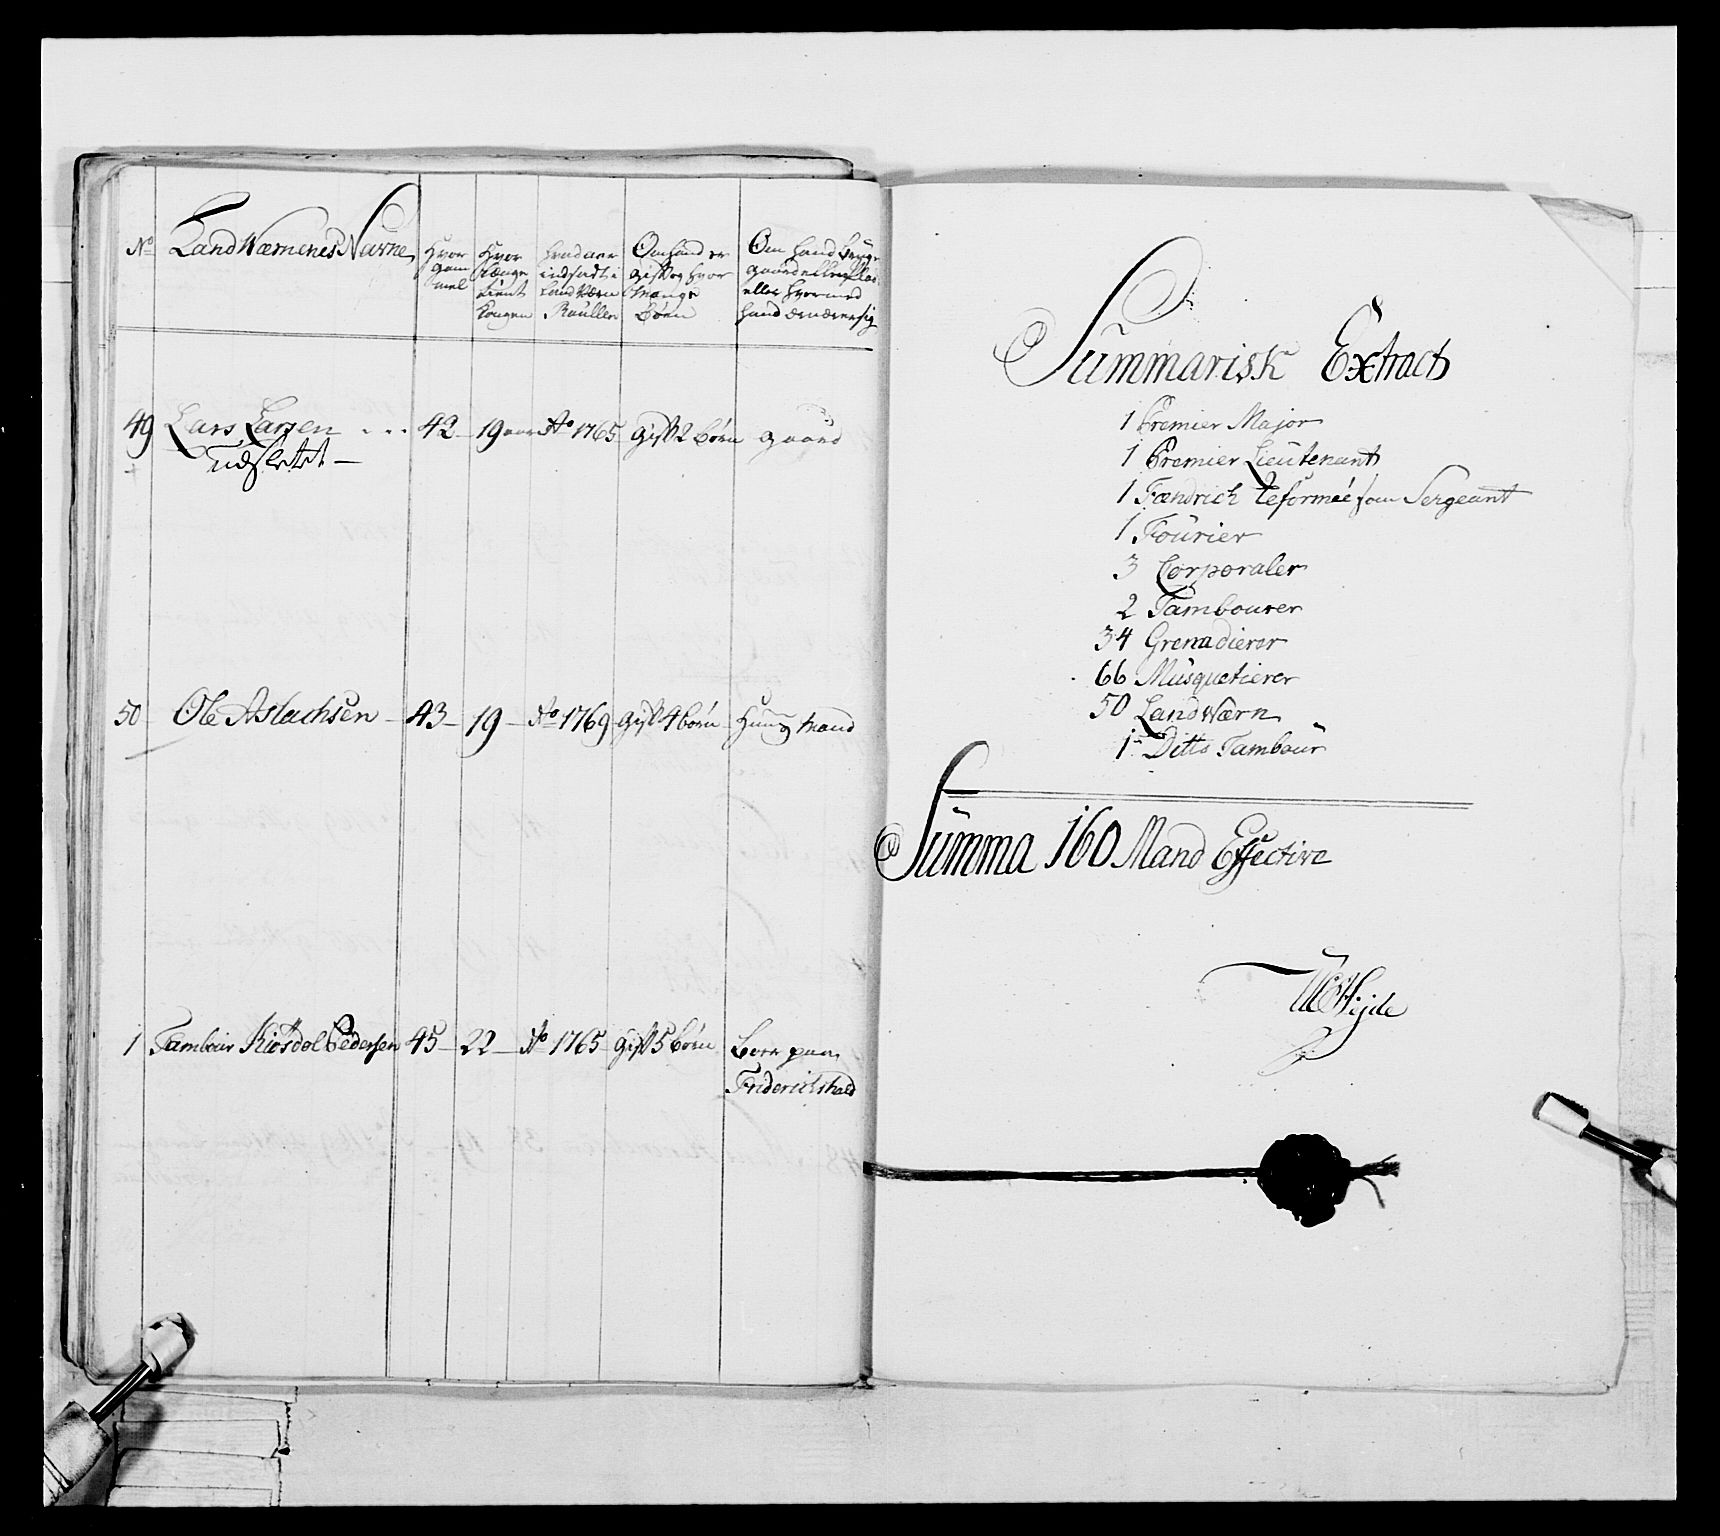 No LandWærnenes Navne Hvor gam mel Hvor længe tient Kongen Hvad aar indsadt i Land Wærn Roullen Om hand er gift og hvor Mange børn Om hand bruger gaard eller Plas eller hvormed hand ernærer sig
49 Lars Larsen . . . 42 19 aar Ao 1765 gift 2 børn gaard
udslettet
50 Ole Aslachsen 43 19 Ao 1769 gift 4 børn Huus Mand
1 Tambour Pedersen 45 22 Ao 1765 gift 5 børn boer paa
Friderichshald
Summarisk Extract
1 Premier Major
1 Premier Lieutenant
1 Fændrich Reformeé som Sergeant
1 Fourier
3 Corporaler
2 Tambourer
34 Grenadierer
66 Musquetierer
50 LandWærn
1 Ditto Tambour
Summa 160 Mand Effective